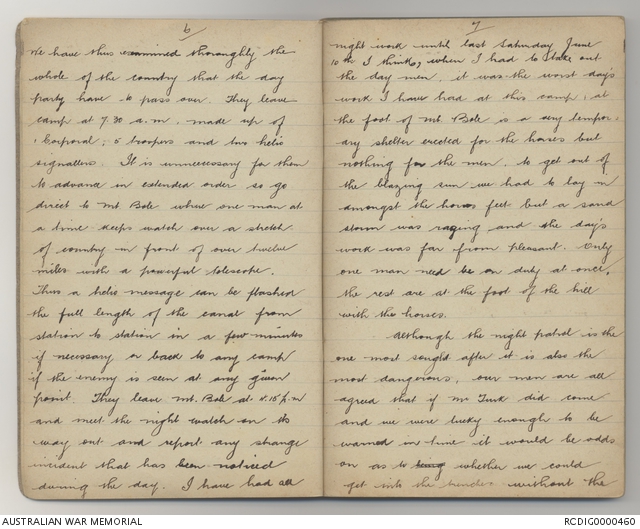 6
We have thus examined thoroughly the
whole of the country that the day
party have to pass over. They leave
camp at 7.30 a.m. made up of
1 Corporal, 5 troopers and two helio
signallers. It is unnecessary for them
to advance in extended order so go
direct to Mt. Bole where one man at
a time keeps watch over a stretch
of country in front of over twelve
miles with a powerful telescope.
Thus a helio message can be flashed
the full length of the canal from
station to station in a few minutes
if necessary or back to any camp
if the enemy is seen at any given
point. They leave Mt. Bole at 4.15 p.m
and meet the night watch on its
way out and report any strange
incident that has been noticed
during the day. I have had all
7
night work until last Saturday June
10th I think, when I had to take out
the day men, it was the worst day's
work I have had at this camp, at
the foot of Mt. Bole is a very tempor-
ary shelter erected for the horses but
nothing for the men, to get out of
the blazing sun we had to lay in
amongst the horses feet but a sand
storm was raging and the day's
work was far from pleasant. Only
one man need be on duty at once,
the rest are at the foot of the hill
with the horses.
Although the night patrol is the
one most sought after it is also the
most dangerous, our men are all
agreed that if Mr Turk did come
and we were lucky enough to be
warned in time it would be odds
on as to being whether we could
get into the trenches without the
AUSTRALIAN WAR MEMORIAL
RCDIG0000460